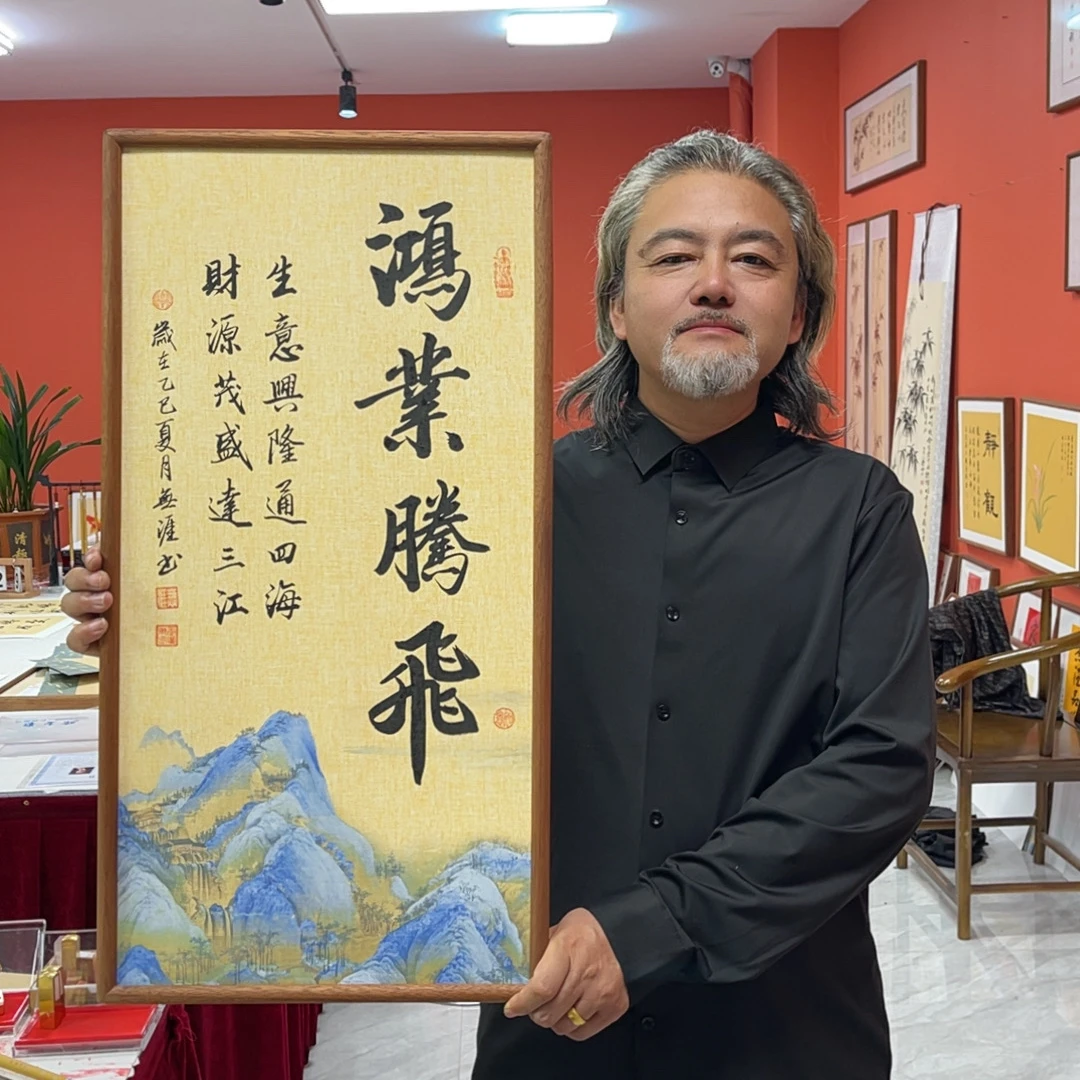 鴻業騰飛
生意興隆通四海
財源茂盛達三江
歲在乙巳夏月無涯书
靜觀
清趣